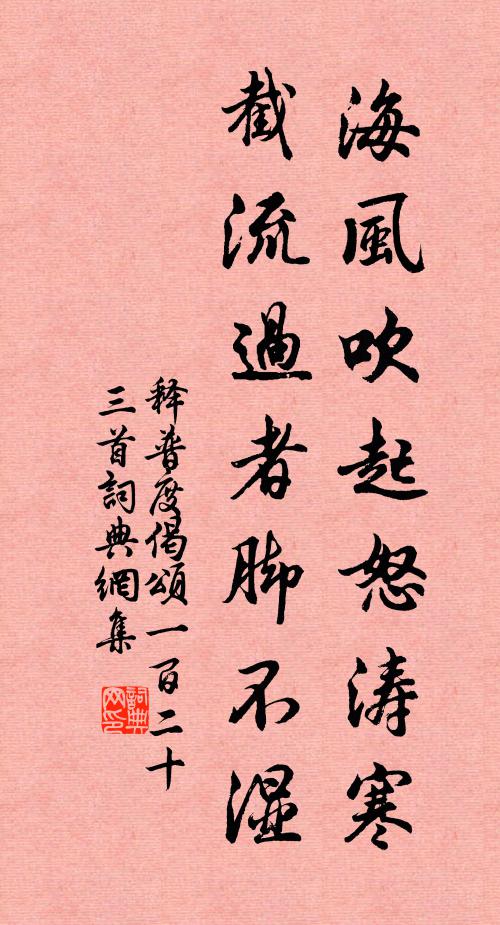 海風吹起怒涛寒
截流過者脚不濕
释普度偈頌一百二十
三首詞典網集
詞典
网印